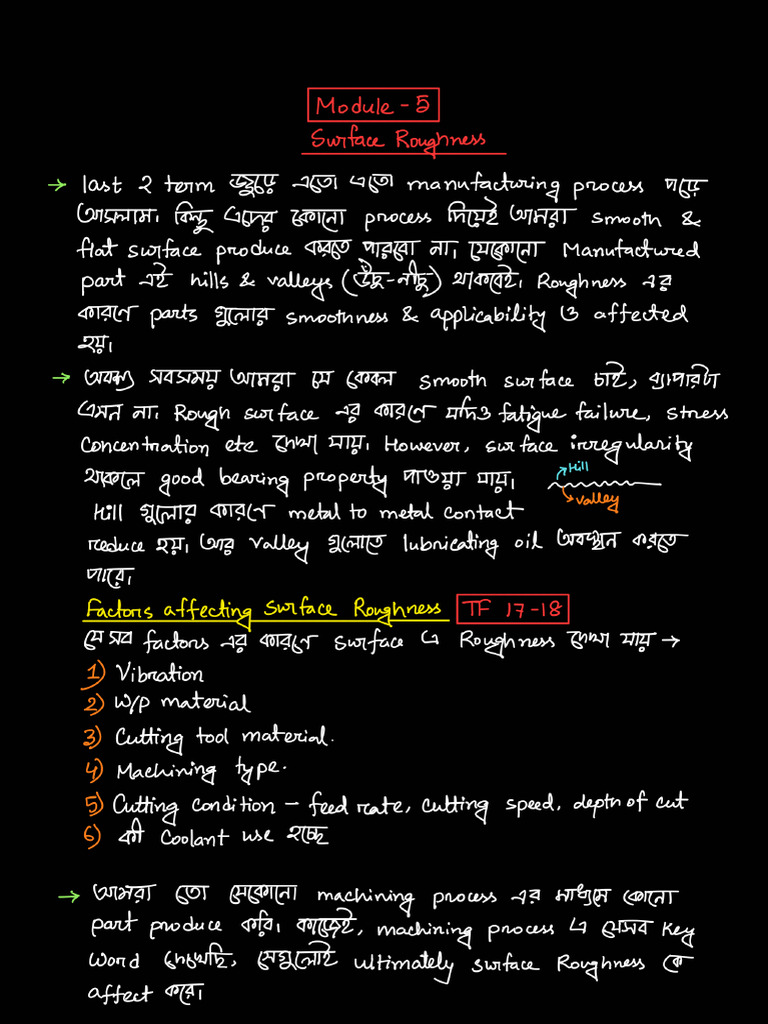 Module - 5
Surface Roughness
→ last 2 term জুড়ে এতো এতো manufacturing process পড়ে
আসলাম। কিন্তু এদের কোনো process দিয়েই আমরা smooth &
flat surface produce করতে পারবো না। যেকোনো Manufactured
part এই hills & valleys (উঁচু-নীচু) থাকবেই। Roughness এর
কারণে parts গুলোর smoothness & applicability ও affected
হয়।
→ অবশ্য সবসময় আমরা যে কেবল smooth surface চাই, ব্যাপারটা
এমন না। Rough surface এর কারণে যদিও fatigue failure, stress
concentration etc দেখা যায়। However, surface irregularity
থাকলে good bearing property পাওয়া যায়।
Hill
valley
Hill গুলোর কারণে metal to metal contact
reduce হয়। আর valley গুলোতে lubricating oil অবস্থান করতে
পারে।
Factors affecting Surface Roughness TF 17-18
যে সব factors এর কারণে surface এ Roughness দেখা যায় →
1) Vibration
2) W/p material
3) Cutting tool material.
4) Machining type.
5) Cutting condition - feed rate, cutting speed, depth of cut
6) কী Coolant use হচ্ছে
→ আমরা তো যেকোনো machining process এর মাধ্যমে কোনো
part produce করি। কাজেই, machining process এ যেসব key
word দেখেছি, সেগুলোই ultimately surface Roughness কে
affect করে।